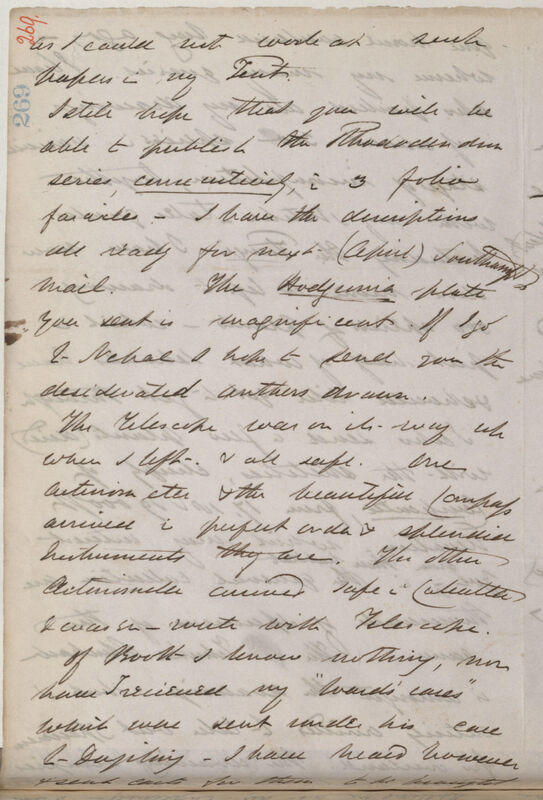 269.
269
as I could not work at such
papers in my Tent.
I still hope that you will be
able to publish the Rhododendron
series, consecutively, in 3 folio
fasicles - I have the descriptions
all ready for next (April) Southampt
mail. The Hodgsonia plate
you sent is magnificent. If I go
to Nepal I hope to send you the
desiderated anthers drawn.
The Telescope was on its way up
when I left. & all safe. One
Actinometer & the beautiful Compass
arrived in perfect order & splendid
Instruments they are. The other
Actinometer arrived safe in Calcutta
& was en-route with Telescope.
Of Booth I know nothing, nor
have I recieved my "Wards cases"
which were sent under his care
to Dorjiling - I have heard however
& sent out for them to be brought